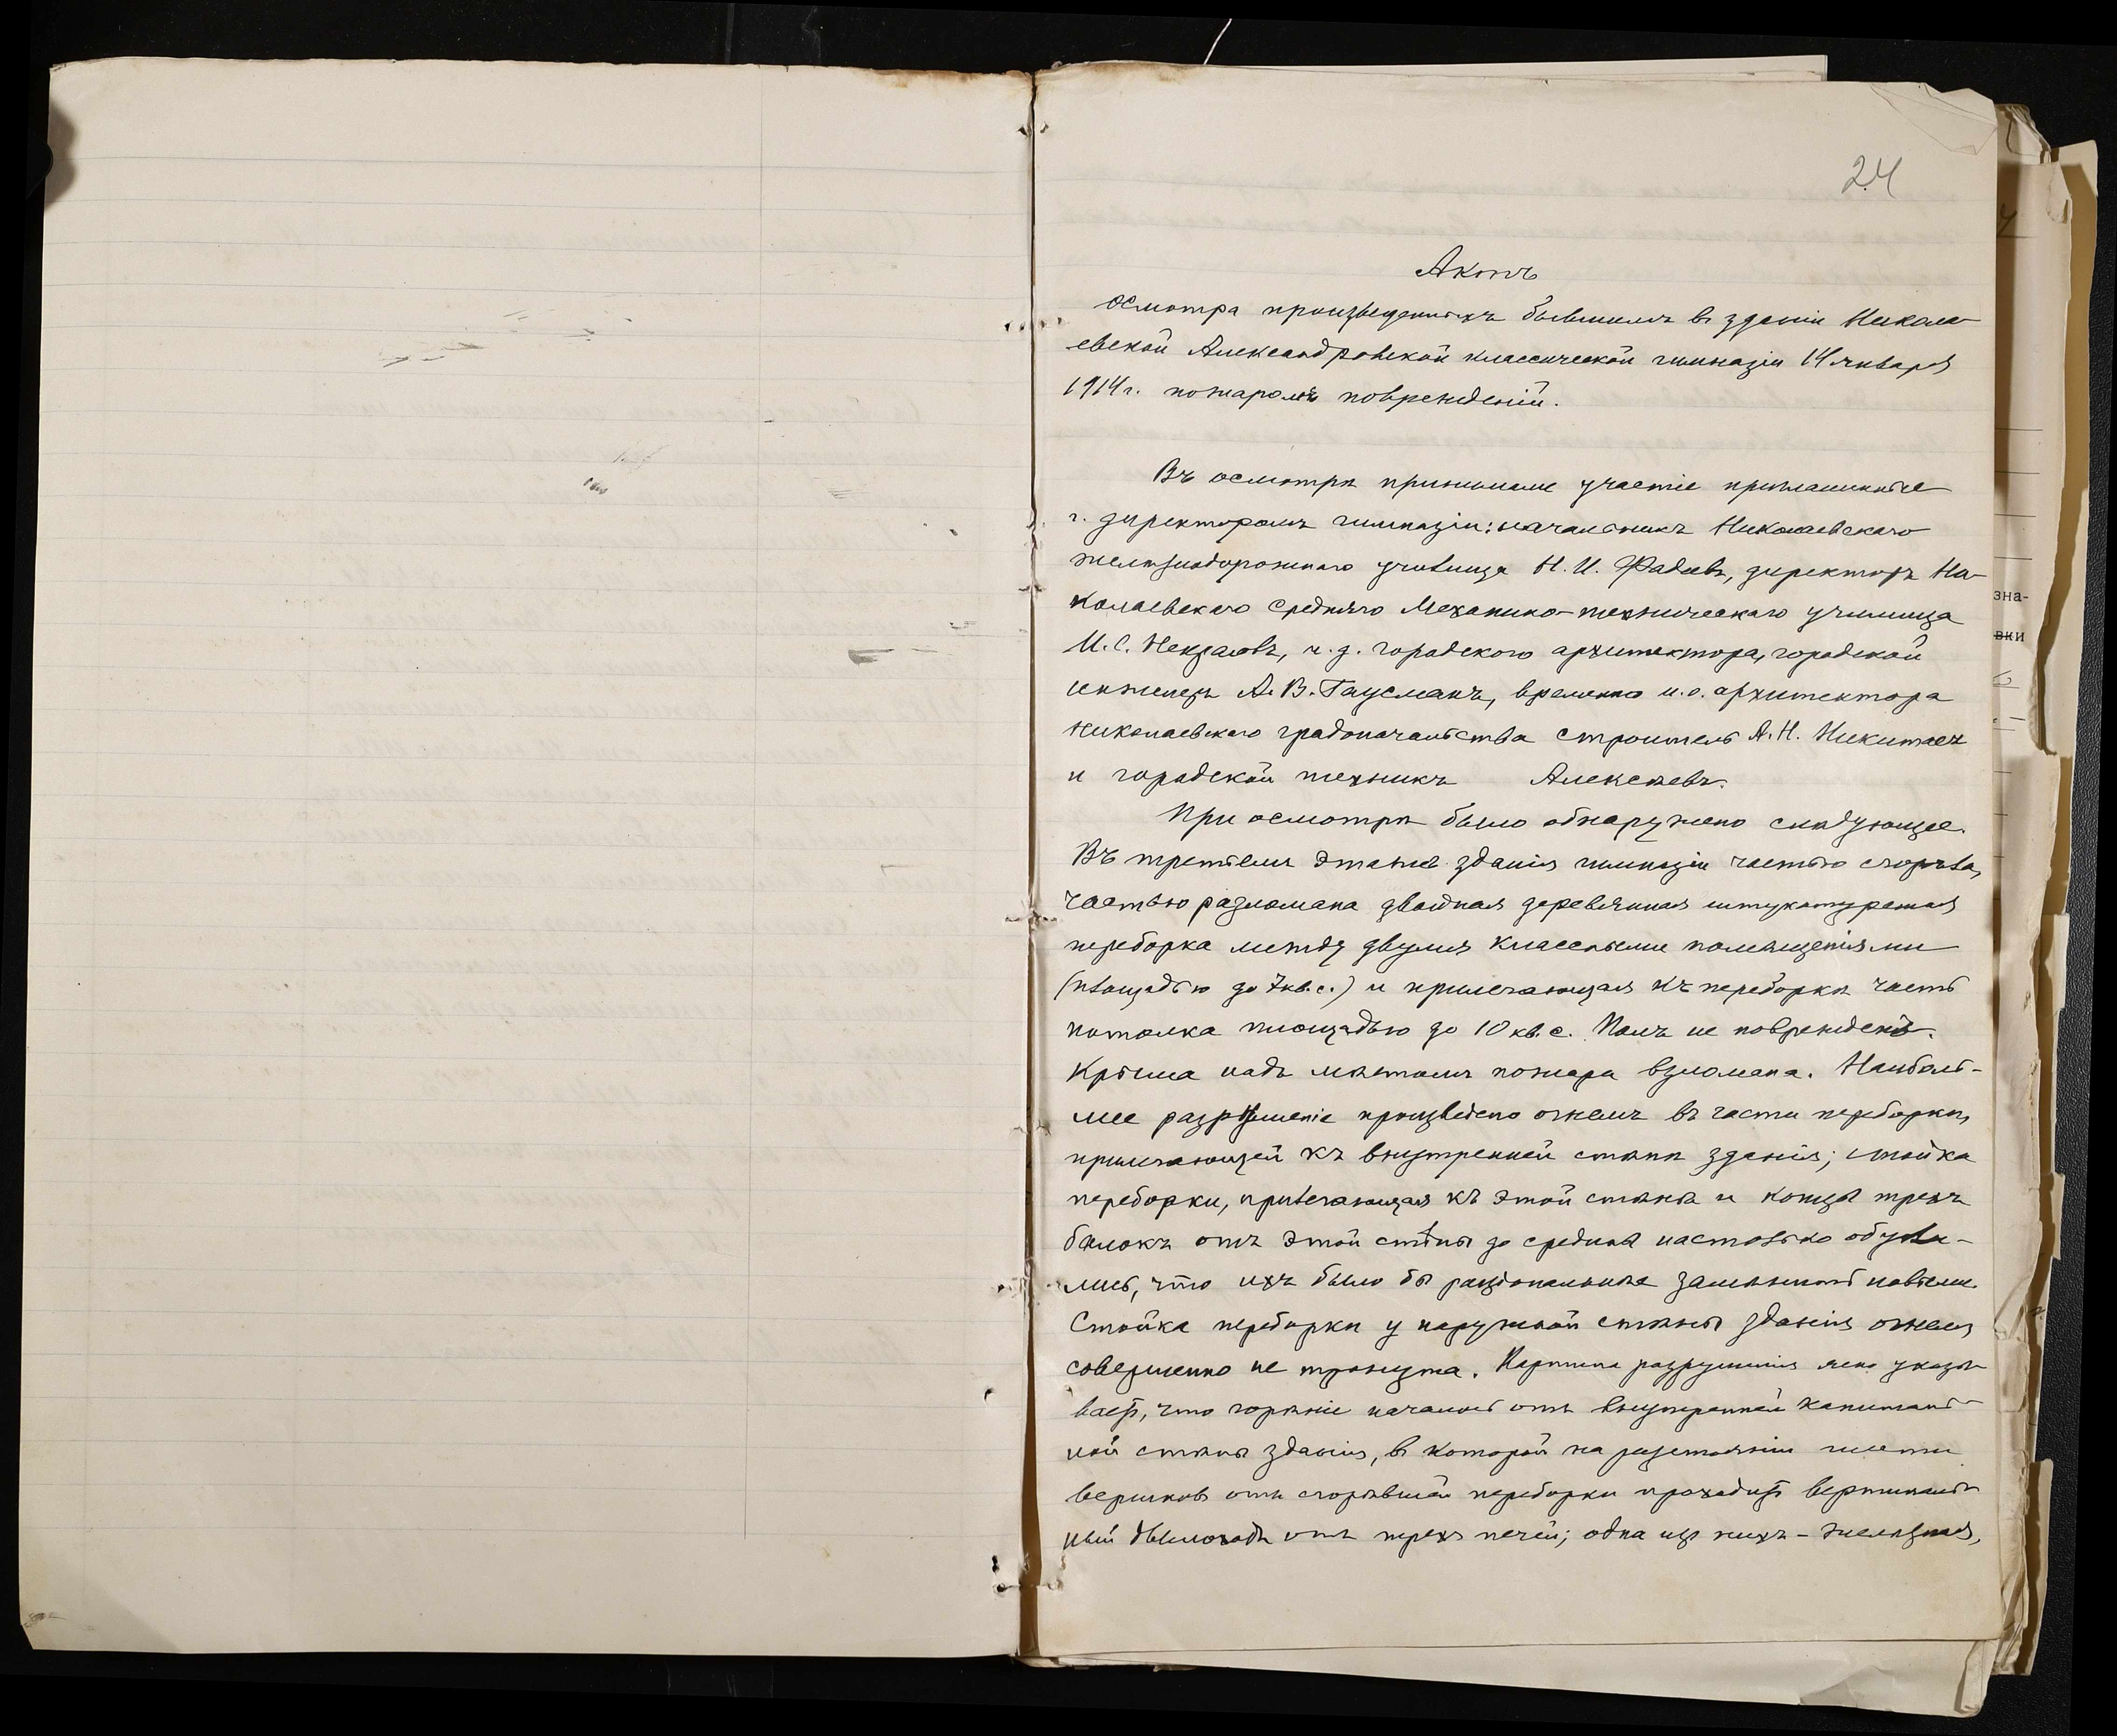 24
Актъ
осмотра произведенныхъ бывшимъ въ зданіи Никола-
евской Александровской классической гимназіи 14 января
1914 г. пожаромъ поврежденій.
Въ осмотрѣ принимали участіе приглашенные
г. директоромъ гимназіи: начальникъ Николаевскаго
желѣзнодорожнаго училища Н. И. Фадѣевъ, директоръ Ни-
колаевскаго средняго механико-техническаго училища
И. С. Некрасовъ, и. д. городского архитектора, городской
инженеръ А. В. Гаусманъ, временно и. о. архитектора
Николаевскаго градоначальства строитель А. Н.
и городской техникъ Алексѣевъ.
При осмотрѣ было обнаружено слѣдующее.
Въ третьемъ этажѣ зданія гимназіи частью сгорѣла,
частью разломана двойная деревянная штукатуреная
переборка между двумя классными помѣщеніями
(площадью до 7 кв. с.) и прилегающая къ переборкѣ часть
потолка площадью до 10 кв. с. Полъ не поврежденъ.
Крыша надъ мѣстомъ пожара взломана. Наиболь-
шее разрушеніе произведено огнемъ въ части переборки,
прилегающей къ внутренней стѣнѣ зданія; стойка
переборки, прилегающая къ этой стѣнѣ и концы трехъ
балокъ отъ этой стѣны до средины настолько обугли-
лись, что ихъ было бы раціональнѣе замѣнить новыми.
Стойка переборки у наружной стѣны зданія огнемъ
совершенно не тронута. Картина разрушенія ясно указы-
ваетъ, что горѣніе началось отъ внутренней капиталь-
ной стѣны зданія, въ которой на разстояніи шести
вершковъ отъ сгорѣвшей переборки проходитъ вертикаль-
ный дымоходъ отъ трехъ печей; одна изъ нихъ - желѣзная,
зна-
вки